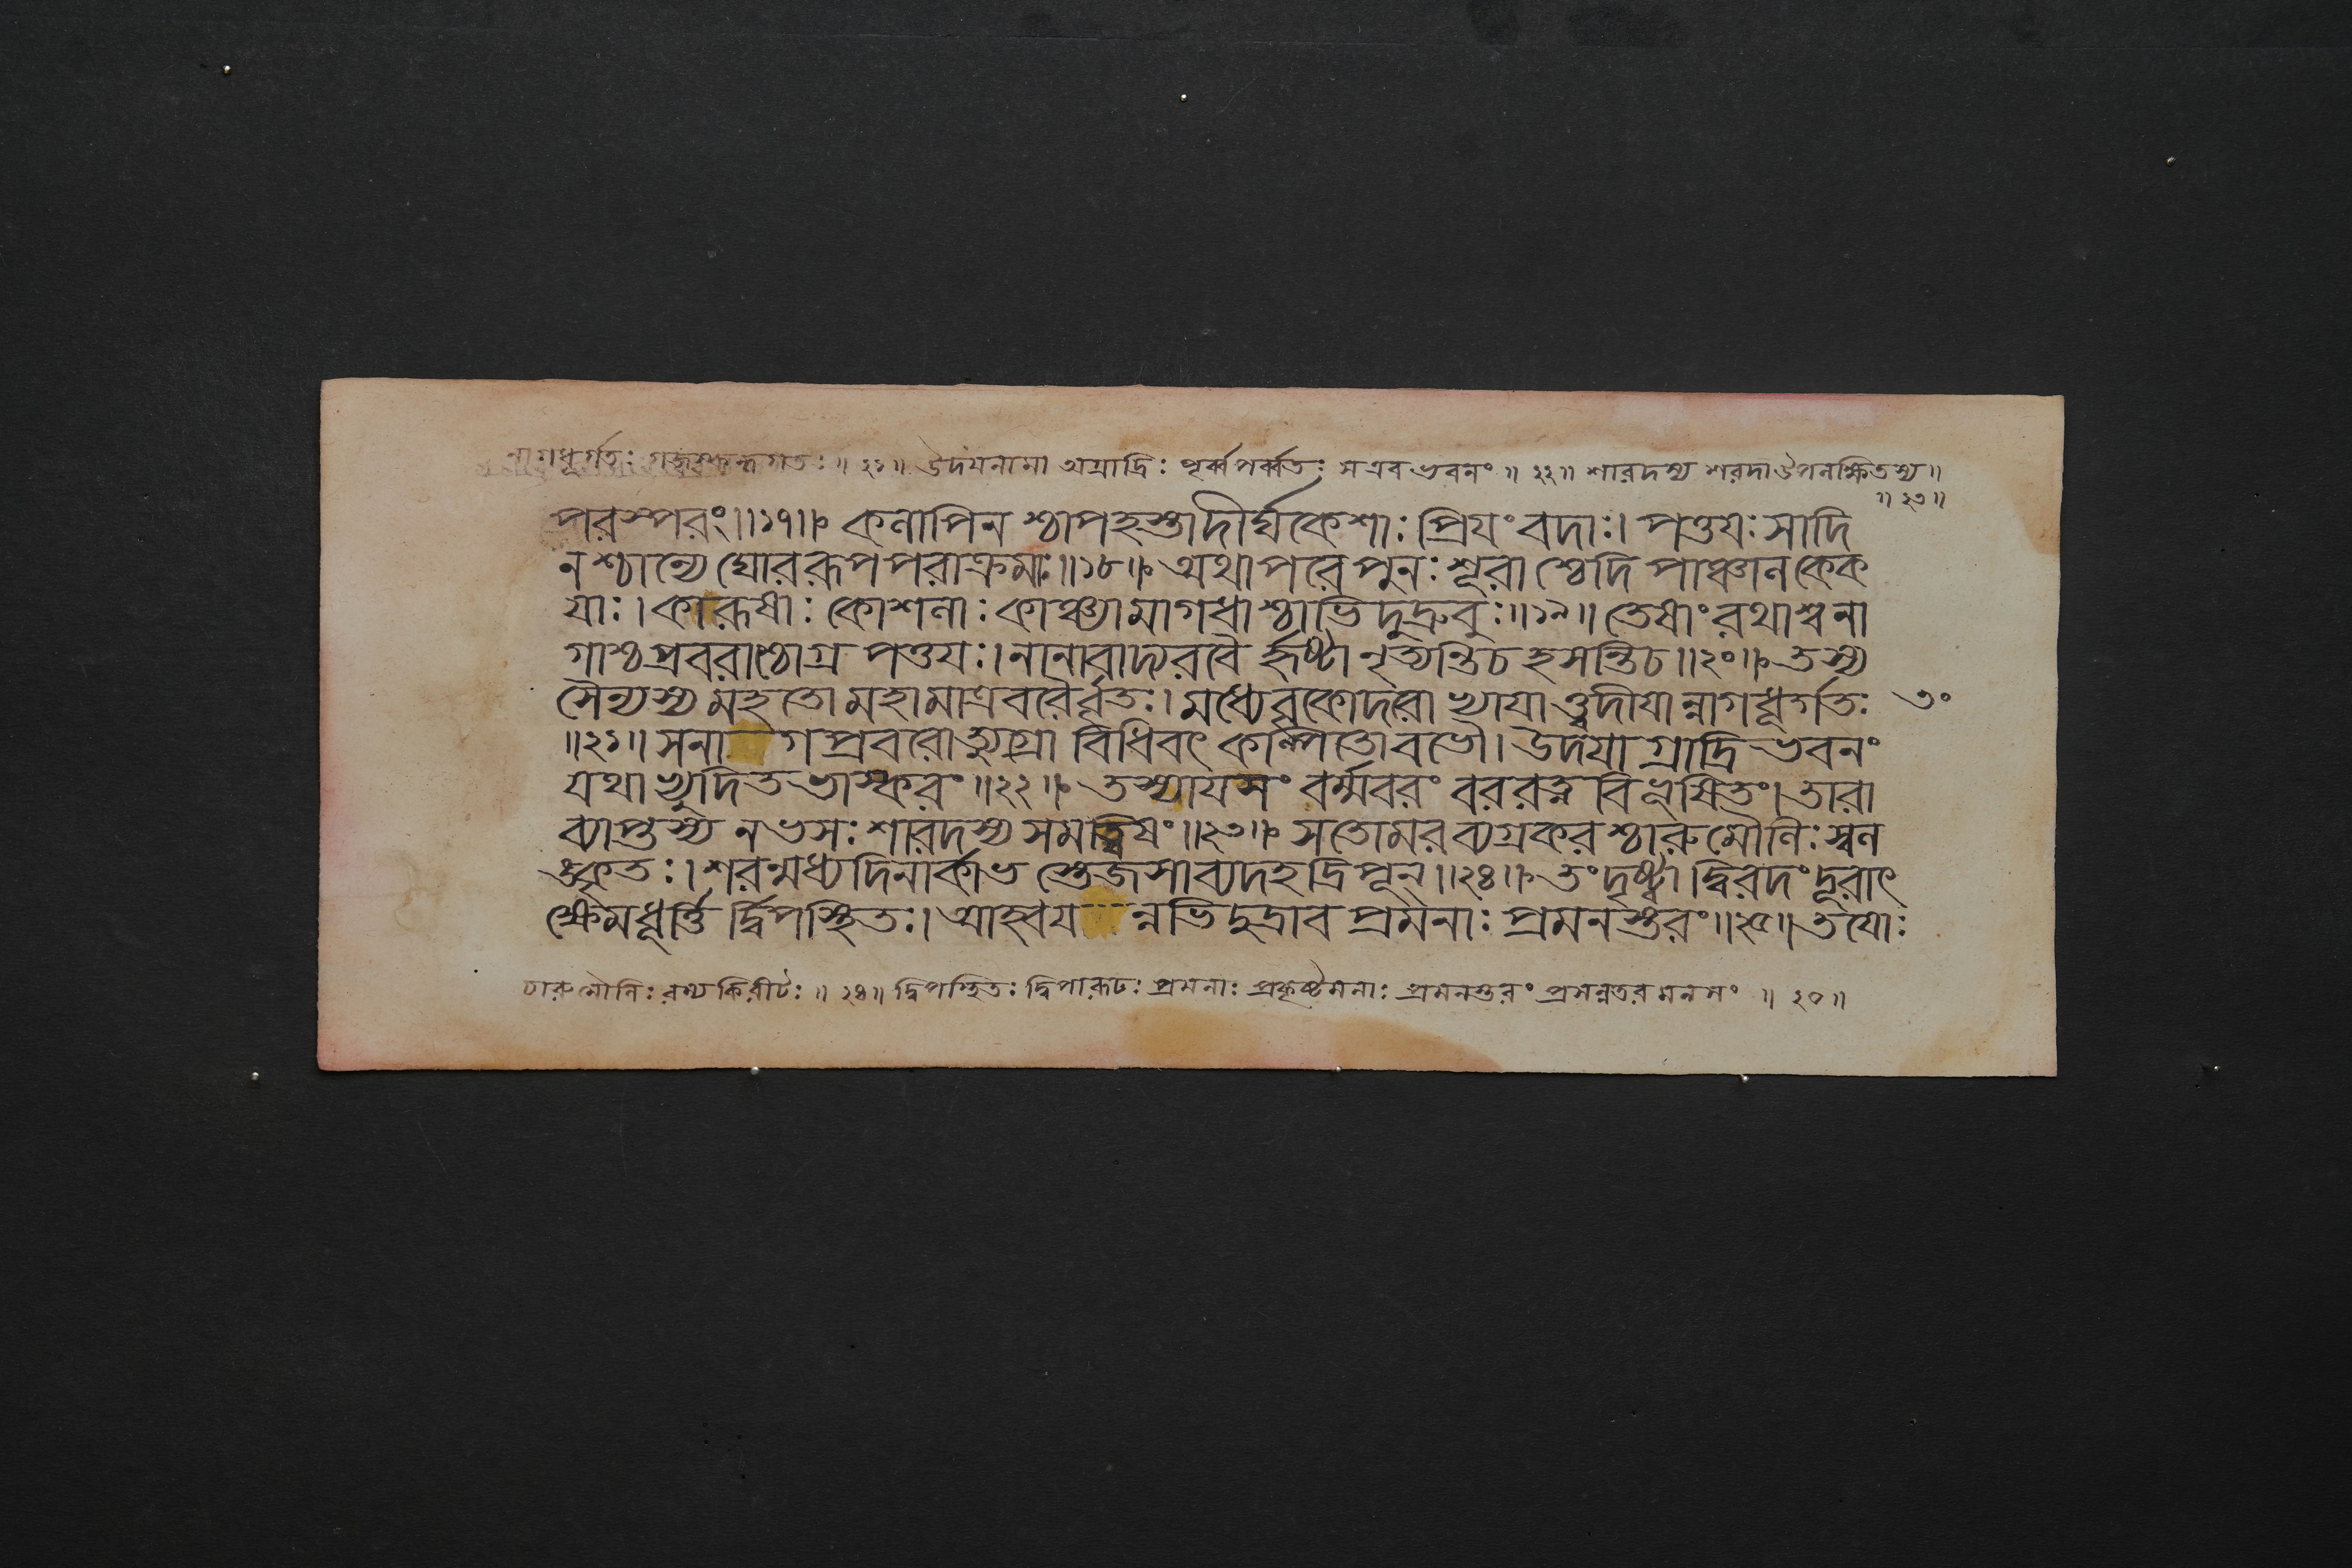 নাগধূর্গতঃ গজস্কন্ধগতঃ ॥ ২১॥ উদয়নামা অগ্রাদ্রিঃ পূর্ব্বপর্ব্বতঃ সএব ভবনং ॥ ২২॥ শারদস্য শরদাউপলক্ষিতস্য॥
॥ ২৩॥
পরস্পরং॥১৭॥ কলাপিন শ্চাপহস্তাদীর্ঘকেশাঃ প্রিয়ং বদাঃ। পত্তয়ঃ সাদি
ন শ্চান্যে ঘোররূপপরাক্রমাঃ॥১৮॥ অথাপরে পুনঃ শূরা শ্চেদি পাঞ্চালকেক
য়াঃ। কারূষাঃ কোশলাঃ কাঞ্চ্যামাগধাশ্চাভিদুদ্রুবুঃ॥১৯॥ তেষাং রথাশ্বনা
গাশ্চপ্রবরাশ্চোগ্র পত্তয়ঃ। নানাবাদ্যরবৈ র্হৃষ্টা নৃত্যন্তিচ হসন্তিচ॥২০॥ তস্য
সৈন্যস্য মহতো মহামাত্রবরৈর্ব্বৃতঃ। মধ্যেবৃকোদরো ভ্যায়াত্ত্বদীয়ান্নাগধূর্গতঃ ৩০
॥২১॥ সনা গপ্রবরোত্যুগ্রো বিধিবৎ কল্পিতোবভৌ। উদয়াগ্রাদ্রি ভবনং
যথাভ্যুদিত ভাস্করং॥২২॥ তস্যায়সং বর্ম্মবরং বররত্ন বিভূষিতং। তারা
ব্যাপ্তস্য নভসঃ শারদস্য সমত্বিষং॥২৩॥ সতোমরব্যগ্রকরশ্চারুমৌলিঃ স্বল
ঙ্কৃতঃ। শরন্মধ্যদিনার্কাভ স্তেজসাব্যদহদ্রিপূন্॥২৪॥ তংদৃষ্ট্বা দ্বিরদং দূরাৎ
ক্ষেমধূর্ত্তি র্দ্বিপস্থিতঃ। আহ্বয় ন্নভিদুদ্রাব প্রমনাঃ প্রমনস্তরং॥২৫॥ তয়োঃ
চারুমৌলিঃ রম্যকিরীটঃ ॥ ২৪॥ দ্বিপস্থিতঃ দ্বিপারূঢঃ প্রমনাঃ প্রকৃষ্টমনাঃ প্রমনস্তরং প্রসন্নতরমনসং ॥ ২৫॥